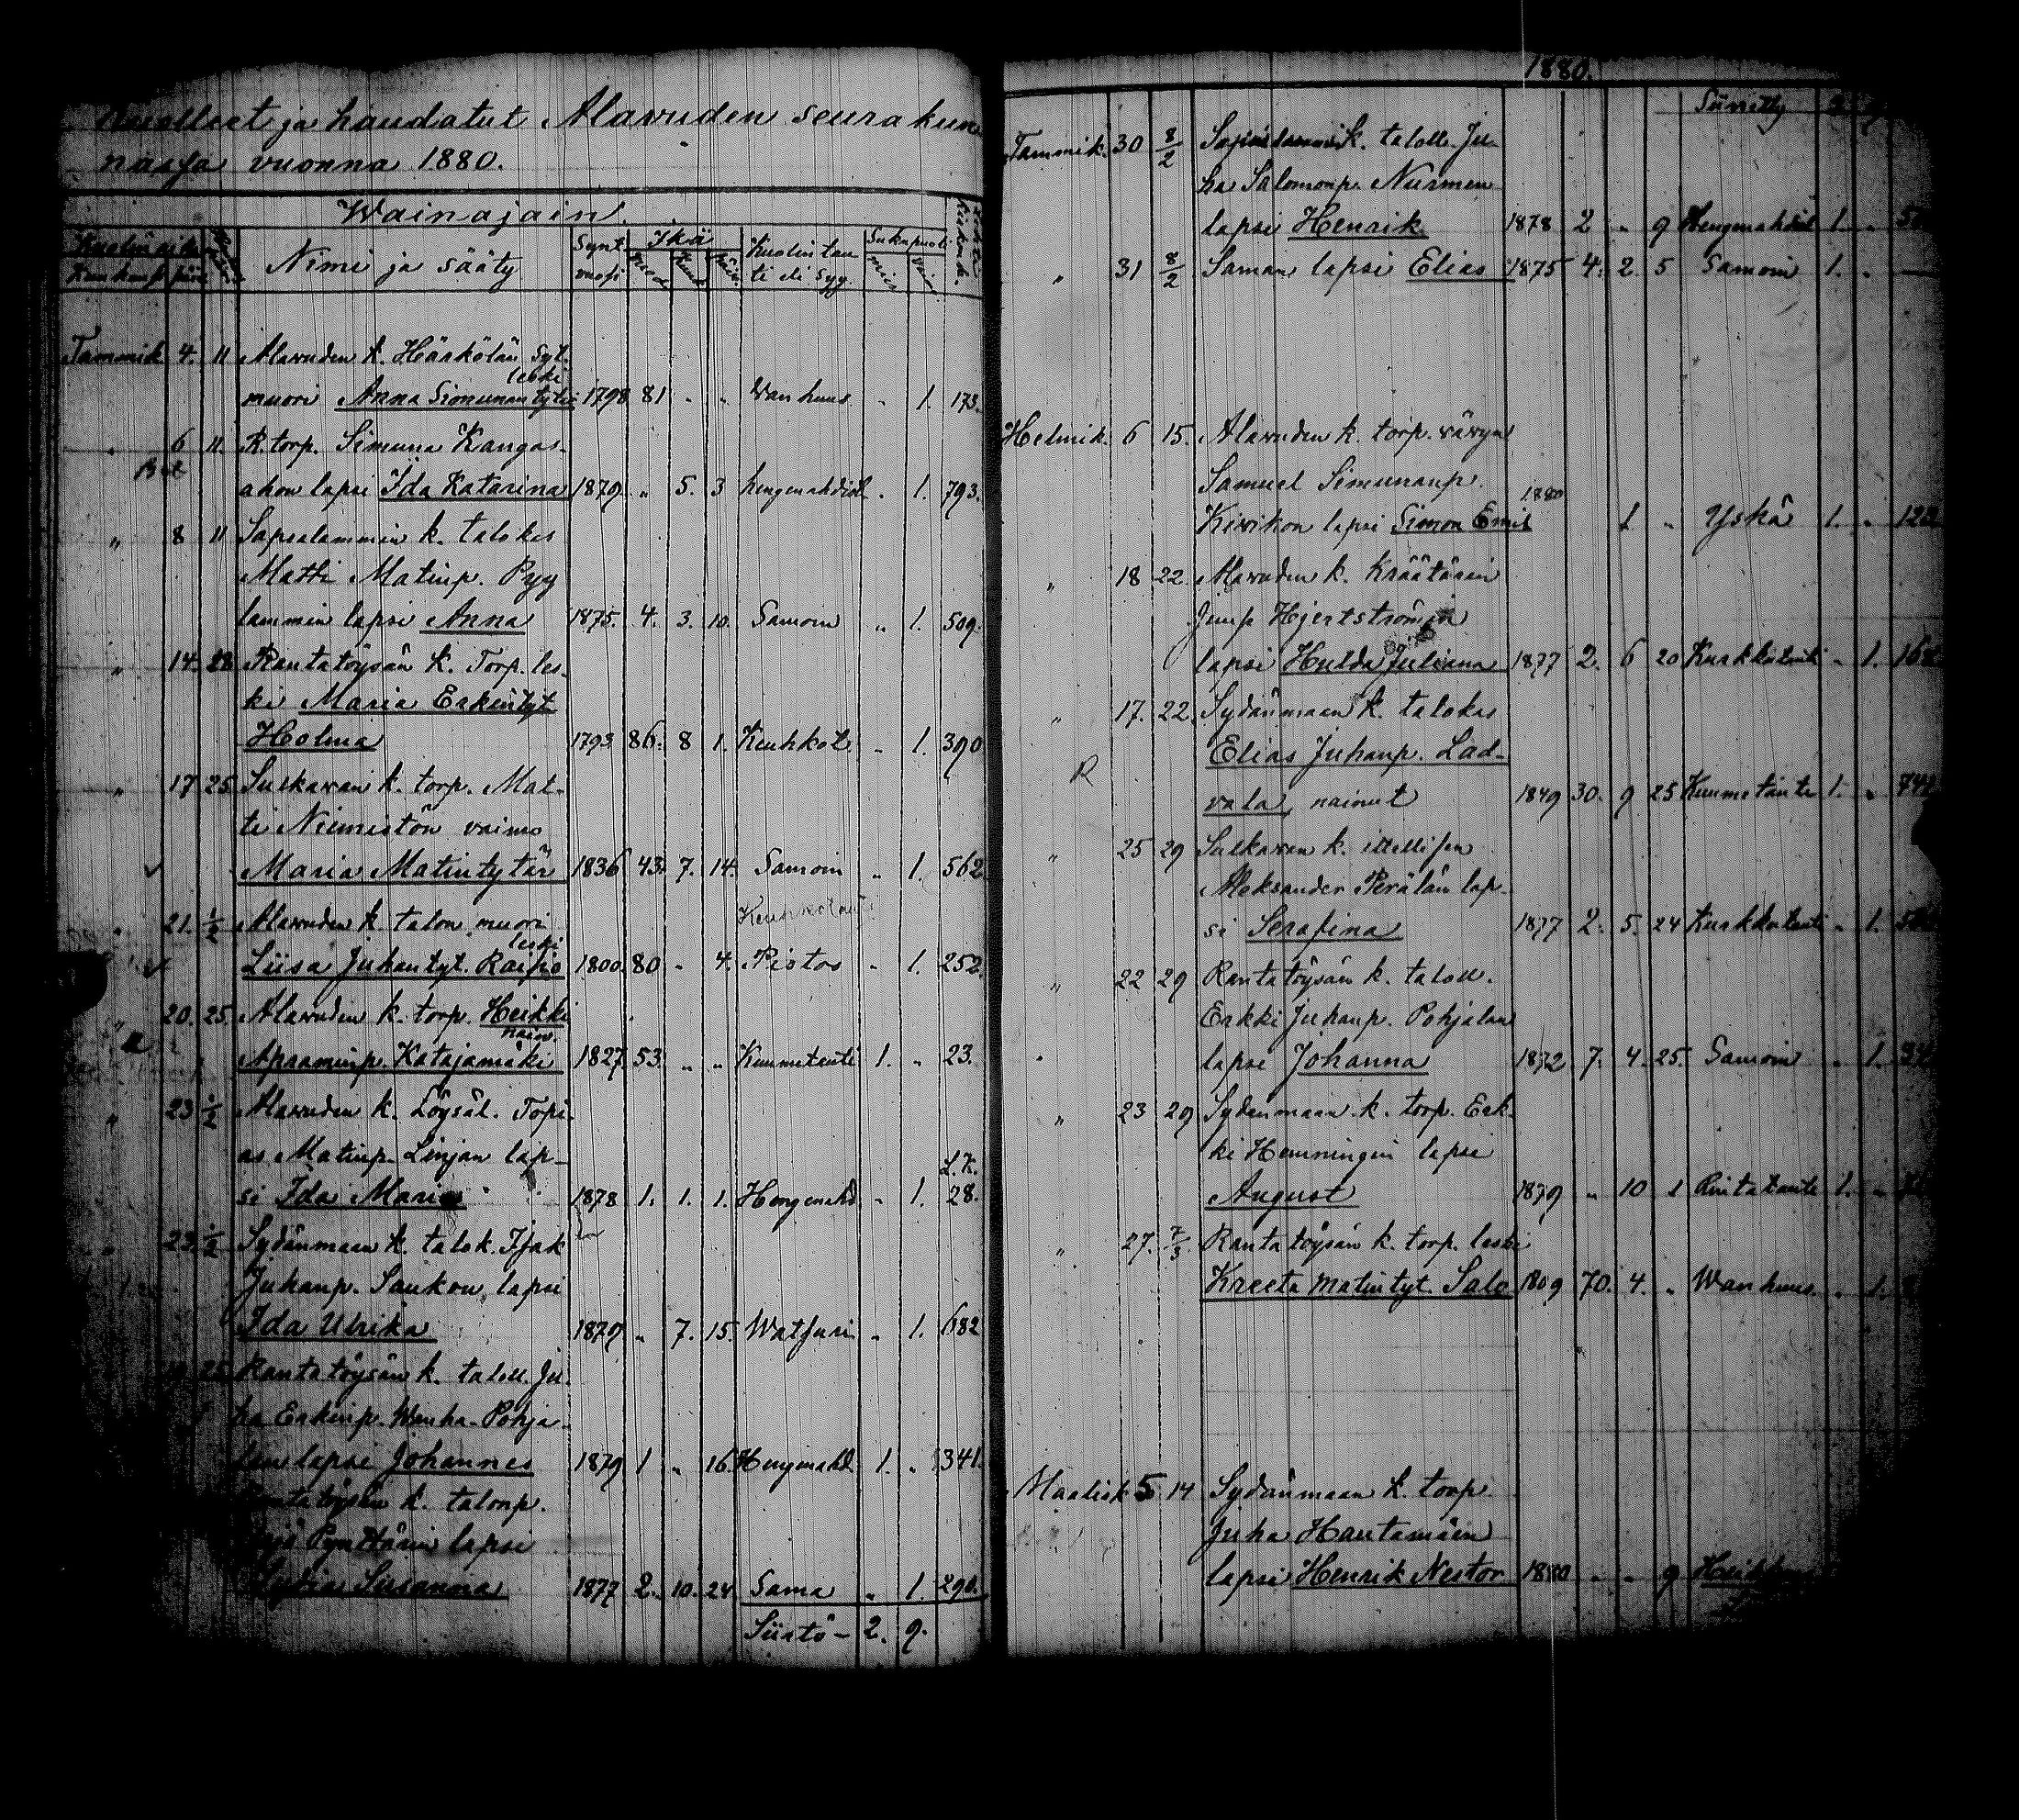 Kuolleet ja haudatut Alavuden seurakun
nassa vuonna 1880.
Wainajain
Nimi ja sääty
Synt. vuosi
Ikä
Kuolintau
ti eli syy
Sukupuoli
Tammik 4. 11 Alavuden k. Härkölän Syt.
leski
muori Anna Simunantytär 1798 81 " " Wanhuus " 1. 173.
" 6 11. K. torp. Simuna Kangas-
ahon lapsi Ida Katarina 1879. " 5. 3 hengenahdist. " 1. 793.
" 8 11 Sapsalammin k. talokas
Matti Matinp. Pyy
lammin lapsi Anna 1875. 4. 3. 10. Samoin " 1. 509.
" 14. 28 Rantatöysän k. Torp. les-
ki Maria Erkintyt.
Holma 1793 86. 8 1. Keuhkot. " 1. 390
" 17 25. Sulkavan k. torp. Mat-
ti Niemistön vaimo
Maria Matintytär 1836 43. 7. 14. Samoin " 1. 562
" 21. 1/2 Alavuden k. talon muori Keuhkotauti
leski
Liisa Juhantyt. Raisio 1800. 80 " 4. Pistos " 1. 252.
" 20. 25. Alavuden k. torp. Heikki
nain.
Apraaminp. Katajamäki 1827 53. " " Kuumetauti 1. " 23.
" 23 1/2 Alavuden k. Löysäl. Topi-
as Matinp. Linjan lap-
L.K.
si Ida Maria 1878 1. 1. 1. Hengenahd. " 1. 28.
" 23. 1/2 Sydänmaan k. talok. Isak
Juhanp. Saukon lapsi
Ida Ulrika 1879 " 7. 15. Watsuri " 1. 682
25 Rantatöysän k. taloll. Ju-
ha Erkinp. Wanha-Pohja-
lan lapsi Johannes 1879 1 " 16. Hengenahd. 1. " 341.
Rantatöysän k. talonp.
Pynttärin lapsi
Lydia Susanna 1877 2. 10. 24 Sama " 1. 290.
Siirtö - 2. 9.
1880.
Siirretty
Tammik. 30 8/2 Sapsalammin k. taloll. Ju-
ha Salomonp. Nurmen
lapsi Henrik 1878 2 " 9 Hengenahdist 1. "
" 31 8/2 Saman lapsi Elias 1875 4. 2. 5 Samoin 1. " —
Helmik. 6 15. Alavuden k. torp. vävyn
Samuel Simunanp.
1880
Kivikon lapsi Simon Emil 1 " Yskä 1. "
" 18 22. Alavuden k. Kräätärin
Hjertströmin
lapsi Hulda Juliana 1877 2. 6 20 Kurkkutauti " 1.
" 17. 22. Sydänmaan k. talokas
Elias Juhanp. Lad-
vala, nainut 1849 30. 9 25 Kuumetauti 1. "
" 25 29 Sulkavan k. itsellisen
Aleksander Perälän lap-
si Serafina 1877 2. 5. 24 Kurkkutauti " 1.
" 22 29 Rantatöysän k. taloll.
Erkki Juhanp. Pohjalan
lapsi Johanna 1872 7. 4. 25. Samoin " 1.
" 23 29 Sydänmaan k. torp. Erk-
ki Hemmingin lapsi
August 1879 " 10 1 Rintatauti 1. "
" 27. 7/3 Rantatöysän k. torp. leski
Kreeta Matintyt. Salo 1809 70. 4. " Wanhuus " 1.
Maalisk 5 14 Sydänmaan k. torp.
Juha Hautamäen
lapsi Henrik Nestor 1880 " " 9